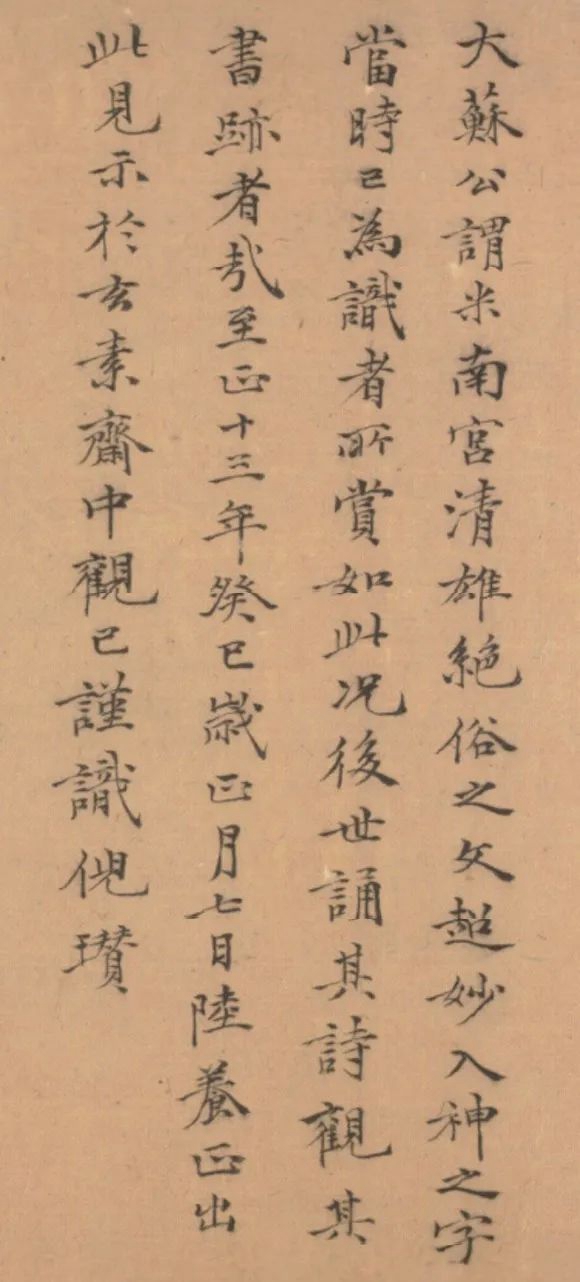 大蘇公謂米南宮清雄絕俗之文超妙入神之字
當時已為識者所賞如此况後世誦其詩觀其
書跡者哉至正十三年癸巳歲正月七日陸養正出
此見示於玄素齋中觀已謹識倪瓚